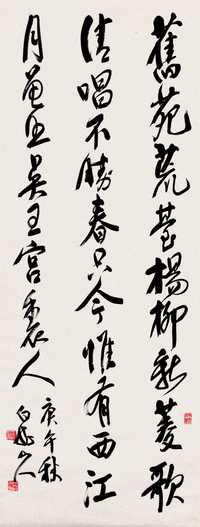 舊苑荒臺楊柳新菱歌
清唱不勝春只今惟有西江
月曾照吴王宫裏人
庚午秋